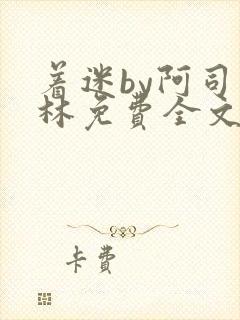 着迷by阿司
林免费全文
卡费